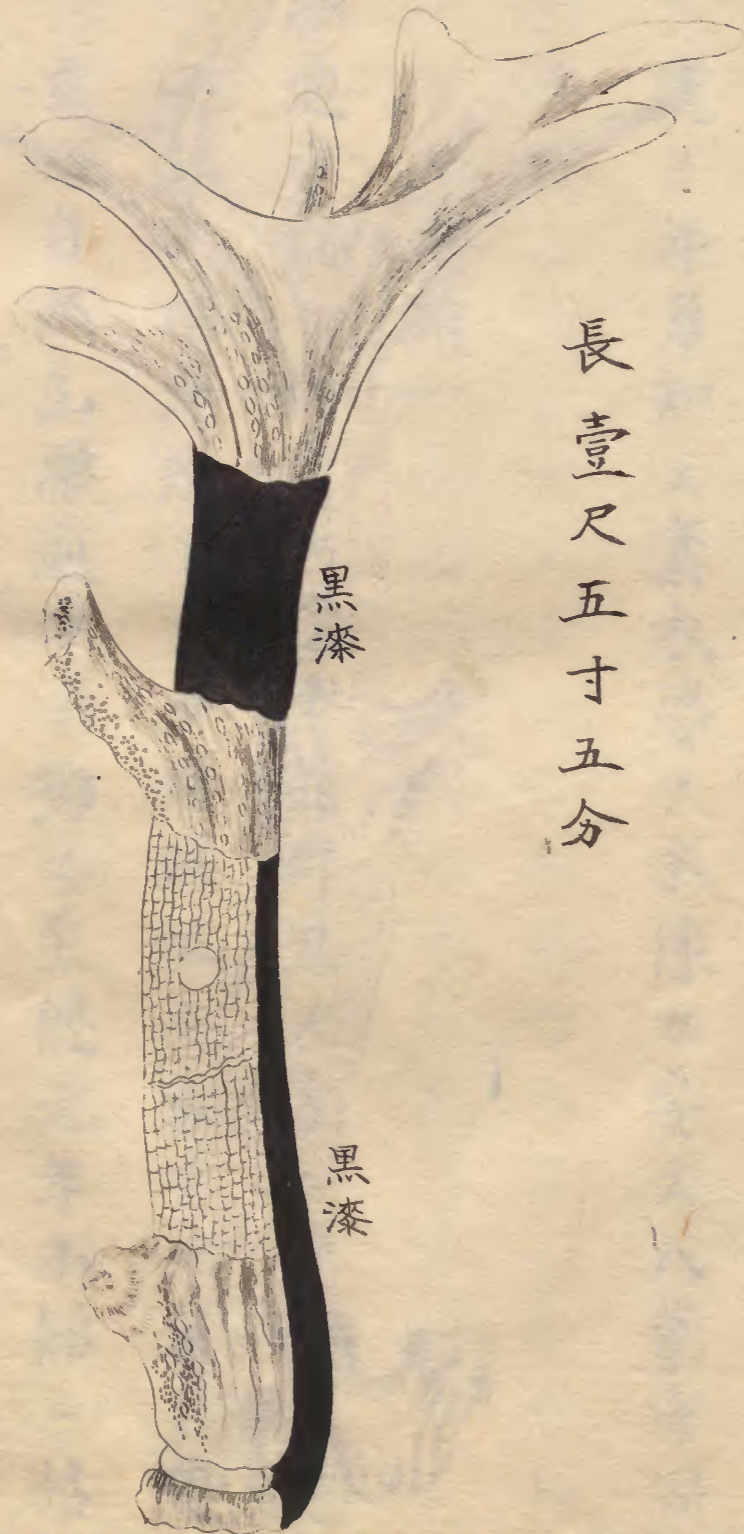 長壹尺五寸五分
黒漆
黒漆